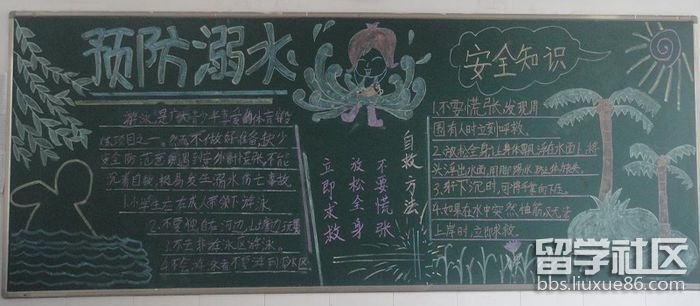 预防溺水
游泳是广大青少年喜爱的体育锻
炼项目之一。然而不做好准备、缺少
安全防范意识,遇到意外时慌张、不能
沉着自救,极易发生溺水伤亡事故。
1.小学生应在成人带领下游泳
2.不要独自在河边、山塘边玩耍
3.不去非游泳区游泳
4.不会游泳者不要游到深水区
自救方法
不要慌张
放松全身
立即求救
安全知识
1.不要慌张,发现周
围有人时立刻呼救。
2.放松全身,让身体飘浮在水面上,将
头浮出水面,用脚踢水
3.身体下沉时,可将手掌向下压。
4.如果在水中突然抽筋,又无法
上岸时,立即求救。
留学社区
bbs.liuxue86.com